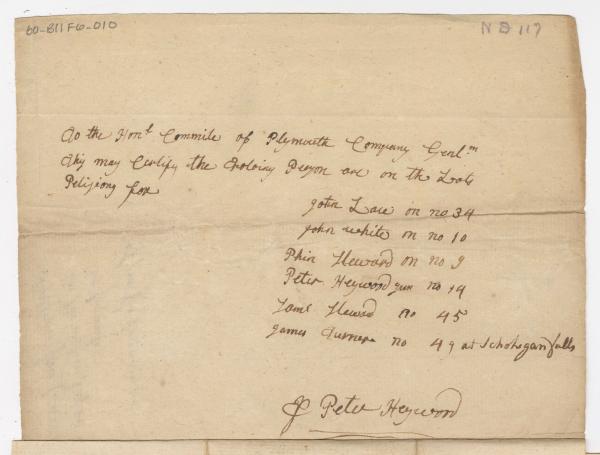 60-B11F6-010
N B 117
To the Honl Commite of Plymouth Company Genlm
this may Certify the Persons are on the Lots
Petijiong for
John Lace on no 34
John White on no 10
Phin Heward on no 9
Peter Heywood jun no 14
Jams Heward no 45
James Turner no 49 at Schohegan falls
P Peter Heywood